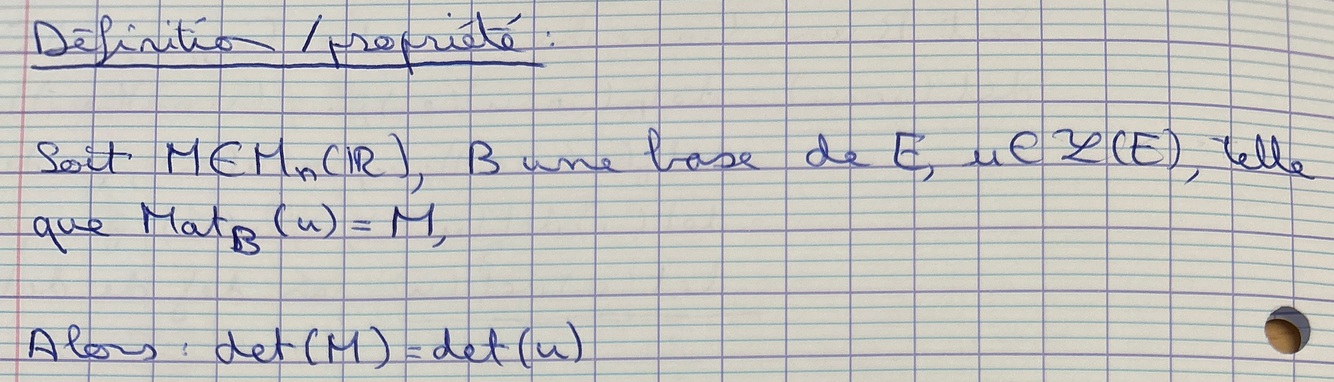 Définition / propriété :
Soit M ∈ M_n(ℝ), B une base de E, u ∈ ℒ(E), telle
que Mat_B (u) = M,
Alors : det(M) = det(u)